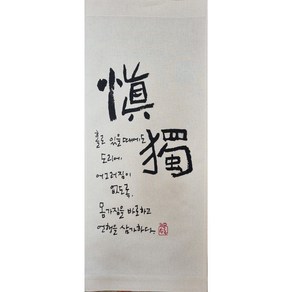 愼
獨
홀로 있을 때에도
도리에
어그러짐이
없도록,
몸가짐을 바로하고
언행을 삼가하다.